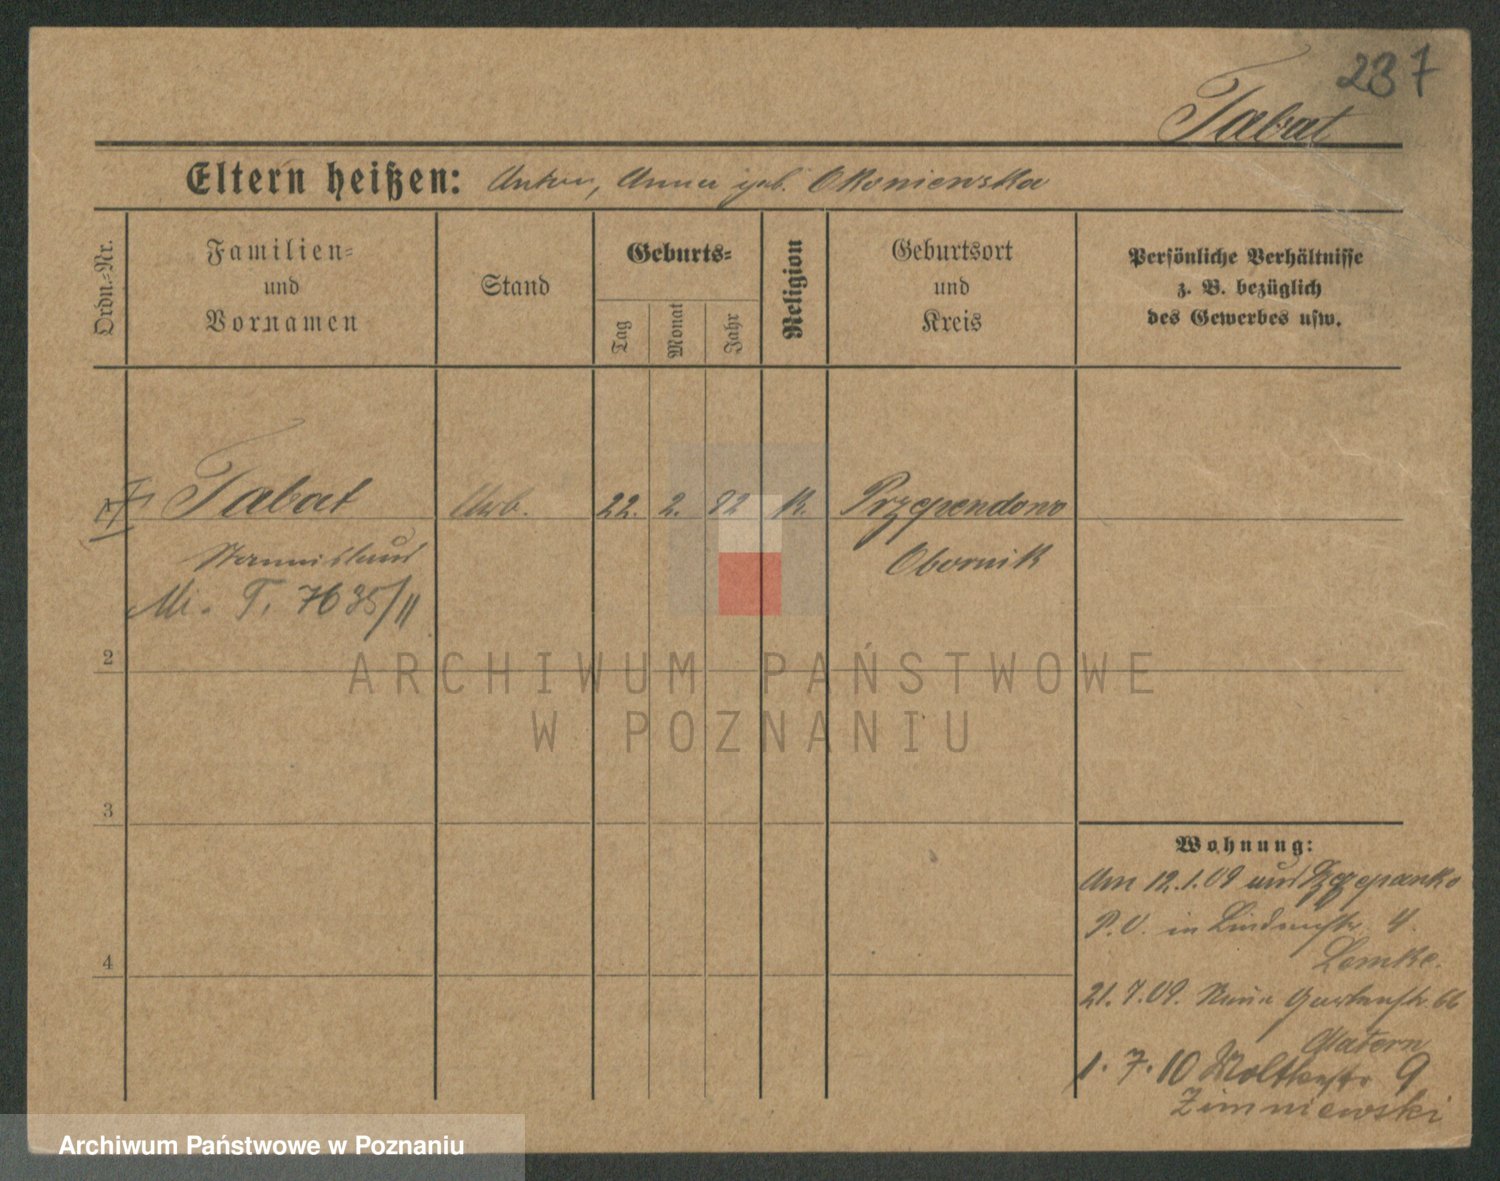 237
Tabat
Eltern heißen: Anton, Anna geb. Okoniewska
Ordn.-Nr.
Familien-
und
Vornamen
Stand
Geburts-
Tag
Monat
Jahr
Religion
Geburtsort
und
Kreis
Persönliche Verhältnisse
z. B. bezüglich
des Gewerbes usw.
1 Tabat Arb. 22. 2. 82 K. Przependowo
Stannislaus Obornik
Mi. T. 7635/11
2
3
4
Wohnung:
Am 12.1.09 aus
P.O. in Lindenstr. 4.
Lemke.
21.7.09. Neue Gartenstr. 66
1.7.10 Moltkestr. 9
Zimniewski
ARCHIWUM PAŃSTWOWE
W POZNANIU
Archiwum Państwowe w Poznaniu